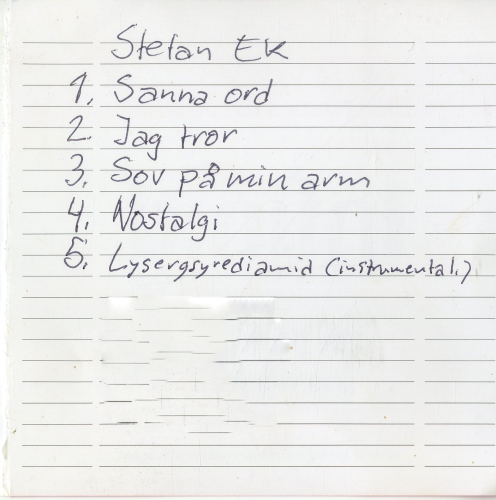 Stefan Ek
1. Sanna ord
2. Jag tror
3. Sov på min arm
4. Nostalgi
5. Lysergsyrediamid (instrumental.)